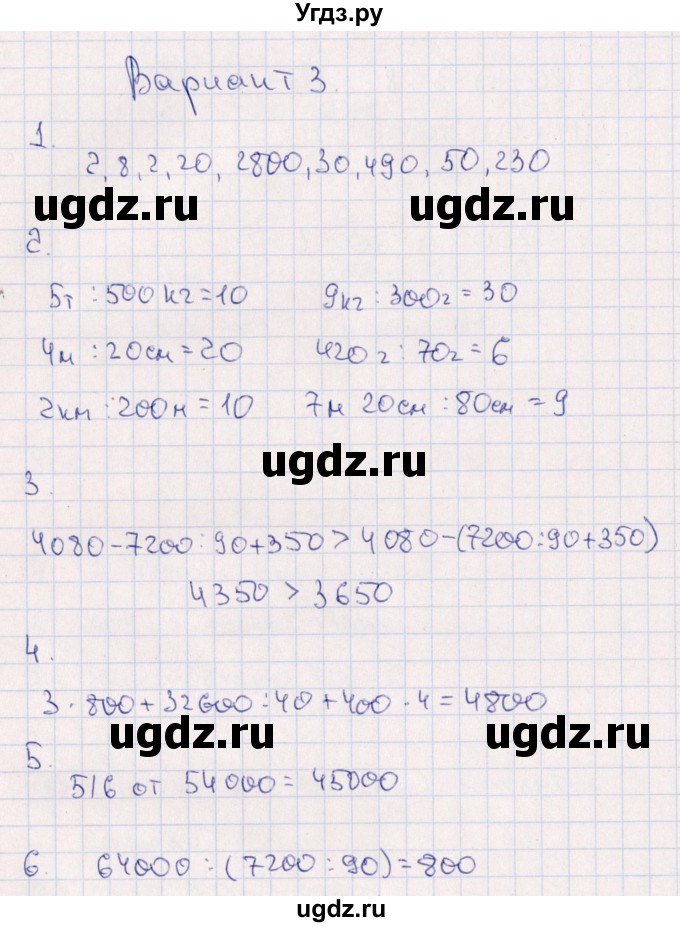 Угдз.ру
Вариант 3.
1.
2, 8, 2, 20, 2800, 30, 490, 50, 230
ugdz.ru ugdz.ru
2.
5т : 500 кг = 10 9кг : 300г = 30
4м : 20см = 20 420 г : 70г = 6
2км : 200м = 10 7м 20см : 80см = 9
ugdz.ru
3.
4080 - 7200 : 90 + 350 > 4080 - (7200 : 90 + 350)
4350 > 3650
4.
3 · 800 + 32600 : 40 + 400 · 4 = 4800
ugdz.ru ugdz.ru
5.
5/6 от 54000 = 45000
6. 64000 : (7200 : 90) = 800
ugdz.ru